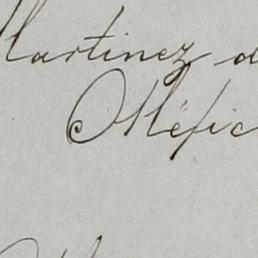 Martinez d
Méfic